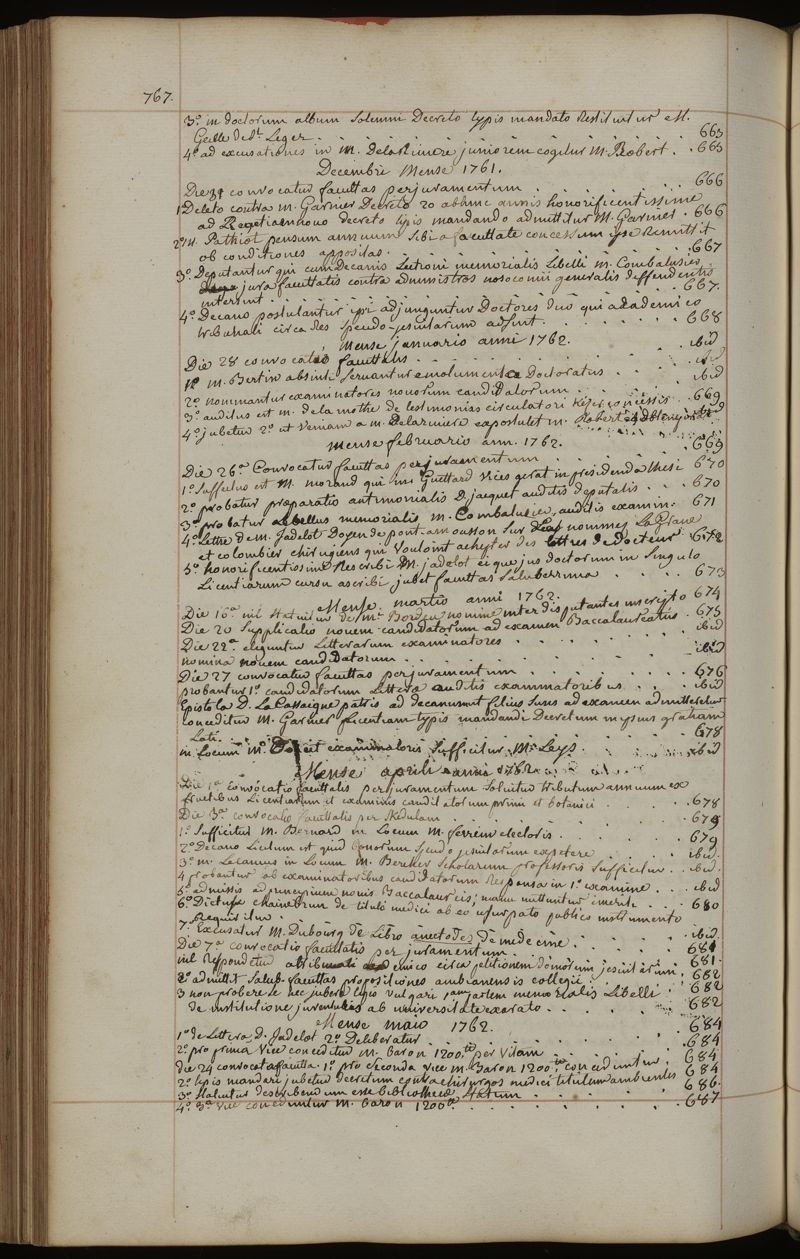 767.
3.º in doctorum album solemni Decreto typis mandato Restituitur est.
Geille de St. Leger . . . . . . . 663
4.º ad excusationes in M. delaRiviere juniorem cogitur M. Robert . . 663
Decembri Mense 1761.
Die 31 convocatur facultas per juramentum . . . . . . . 666
1 Deleto contra M. Garnier Decreto 20 abhinc annis honorificentissime
ad Regentiam novo decreto typis mandando admittitur M. Garnier . 666
2.º M. Pathiot pensum annuum sibi a facultate concessum ipse Remittit
ob conditiones appositas . . . . . . . 667
3.º Deputantur qui cum decanis Lectioni memorialis Libelli M. Combalusier
jura facultatis contra administros nosocomii generalis deffendentis
intersint . . . . . . . 667.
4.º Decano postulantur ipi adjunguntur Doctores duo qui academico
tribunali circa Res pseudo-jesuitarum adsint . . . . . . . 668
Mense januario anni 1762.
Die 28 convocatio facultatis . . . . . . . ibid
1.º M. Bertin absenti servantur emolumenta Doctoratus . . . ibid
2.º nominantur examinatores novorum candidatorum . . . ibid
3.º auditus est M. de la mothe de testimoniis circulatori concessis . 669
4.º jubetur 2.º ut veniam a M. Delariviere expostulet M. Robert
Mense februario ann. 1762.
Die 26.ª Convocatur facultas per juramentum . . . . . 669
1.º suffectus est M. morand qui M. Guettard vices gerat in presidenda thesi 670
2.º probatur præparatio antimonialis D. jacquet auditis deputatis . . . 670
3.º probatur Libellus memorialis M. Combalusier, auditis examin: 671
4.º Lettre de M. Jadelot Doyen de pont-a-mousson sur deux nommez LaGrave
et colombier chirugiens qui vouloint achepter des lettres de Docteur . 672
5.º honorificentissime Rescribi M. jadelot eique jus doctorum in singulo
Licentiarum cursu ascribi jubet facultas saluberrima . . . . . 673
Mense martio anni 1762.
Die 10.ª nil statuitur de M.r Bordeu nomine inter disputantes inscripto 674
Die 20 supplicatio novem candidatorum ad examen Baccalaureatus . 675
Die 22.ª eliguntur Litterarum examinatores . . . . . . ibid
nomina novem candidatorum . . . . . . . ibid
Die 27 convocatur facultas per juramentum . . . . . . 676
probantur 1.º candidatorum Litteræ auditis examinatoribus . . . ibid
Epistola D. La Cassaigne patris ad decanum ut filius suus ad examen admitteretur
conceditur M. Garnier Licentiam typis mandandi Decretum in ipsius gratiam
Lati . . . . . . . 678
in Locum M. examinatoris sufficitur M.r Leys . . . ibid
Mense aprili anni 1762
Die 1.ª Convocatio facultatis per juramentum solvitur tributum annuum ex
fructibus Licentiarum et examinis candidatorum primi et botanici . . . 678
Die 3.ª convocatio facultatis per schedulam . . . . . . 679
1.º Sufficitur M. Bernard in Locum M. ferrein electoris . . . . 679
2.º Decano Licitum est quid bonorum pseudo-jesuitarum expetere . . . ibid.
3.º M. Lecamus in Locum M. Bercher scholarum professoris sufficitur . . ibid.
4 probantur ab examinatoribus candidatorum Responsa in 1.º examine . . . ibid
5.º admissis ad principium novis Baccalaureis, manu mittuntur emeriti . . .
6.º Dictus chainebrun de titulo medici ab eo usurpato publico instrumento 680
Requisitus . . . . . . .
7.º Excusatur M. Dubourg de Libro anectodes de medecine . . . . . ibid.
Die 7.ª convocatio facultatis per juramentum . . . . . . 681
nil Respondetur tribunali academico circa petitionem domorum jesuitarum . 681.
2.º admittit salub. facultas propositiones ambianensis collegii . . . 682
3 non probere se nec jubere typis vulgari partem memorialis Libelli . . 682
de institutione juventutis ab universitate exorato . . . . 682
Mense maio 1762.
1.º de Littera D. Jadelot 2.º Deliberatur . . . . . . 684
2.º pro prima vice conceditur M. Baron 1200.tt per vitam . . . . . 684
die 24 convocata faculta. 1.º pro secunda vice M. Baron 1200.tt conceduntur . 684
2.º typis mandari jubetur decretum contra chirurgos medici titulum ambientes 684
3.º statuitur describendum esse bibliothecæ statum . . . . . . 686.
4.º 3.ª vice conceduntur M. baron 1200.tt . . . . . . 687